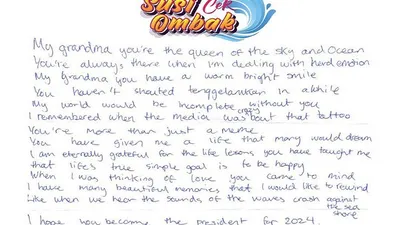 Susi Cek
Ombak
My grandma you're the queen of the sky and Ocean
You're always there when I'm dealing with hard emotion
My Grandma you have a warm bright smile
You haven't shouted tenggelamkan in a while
My world would be incomplete without you
I remembered when the media was crazy bout that tattoo
You're more than just a meme
You have given me a life that many would dream
I am eternally grateful for the life lessons you have taught me
that life's true simple goal is to be happy
When I was thinking of love you came to mind
I have many beautiful memories that I would like to rewind
Like when we hear the sounds of the waves crash against the sea shore
I hope you become the president for 2024